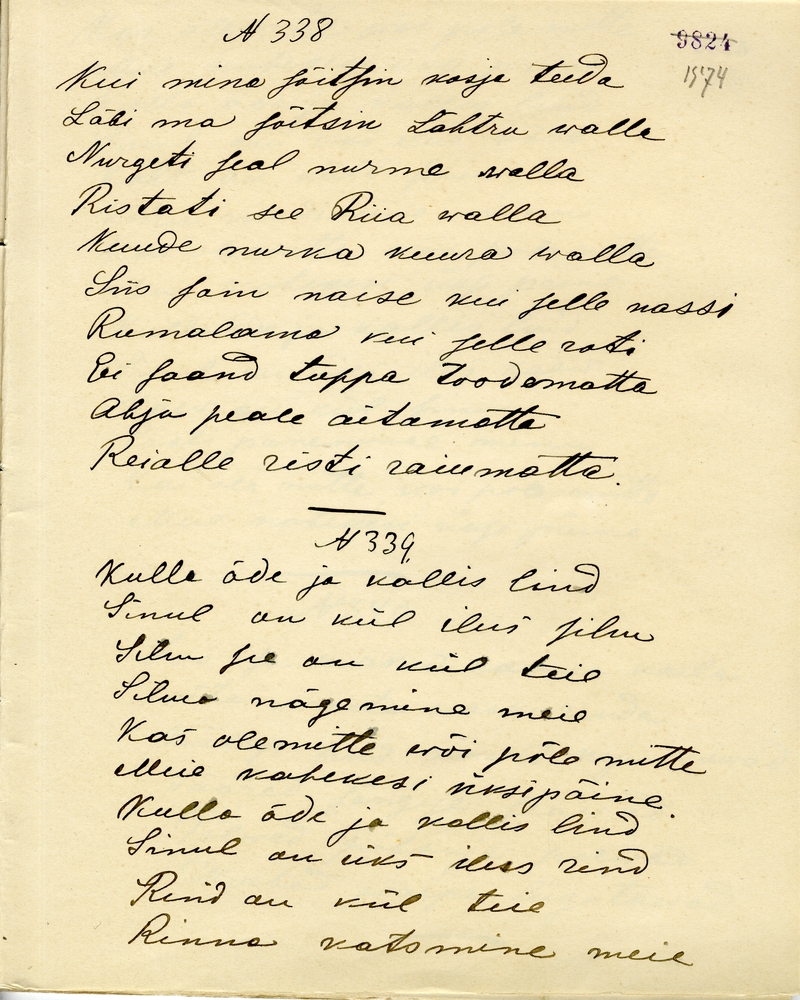 N 338
9824
1574
Kui mina sõitsin kosja teeda
Läbi ma sõitsin Lähtru walla
Nurgeti seal nurme walla
Ristati see Riia walla
Kuude nurka kuura walla
Siis sain naise kui selle kassi
Rumalama kui selle roti
Ei saand tuppa toodamatta
Ahju peale aitamatta
Reialle risti raiumatta.
N 339
Kulla õde ja kallis lind
Sinul on kül ilus silm
Silm se on kül teie
Silma nägemine meie
Kas olemitte wõi põle mitte
Meie kahekesi üksipäine.
Kulla õde ja kallis lind
Sinul on üks iluss rind
Rind on kül teie
Rinna katsmine meie